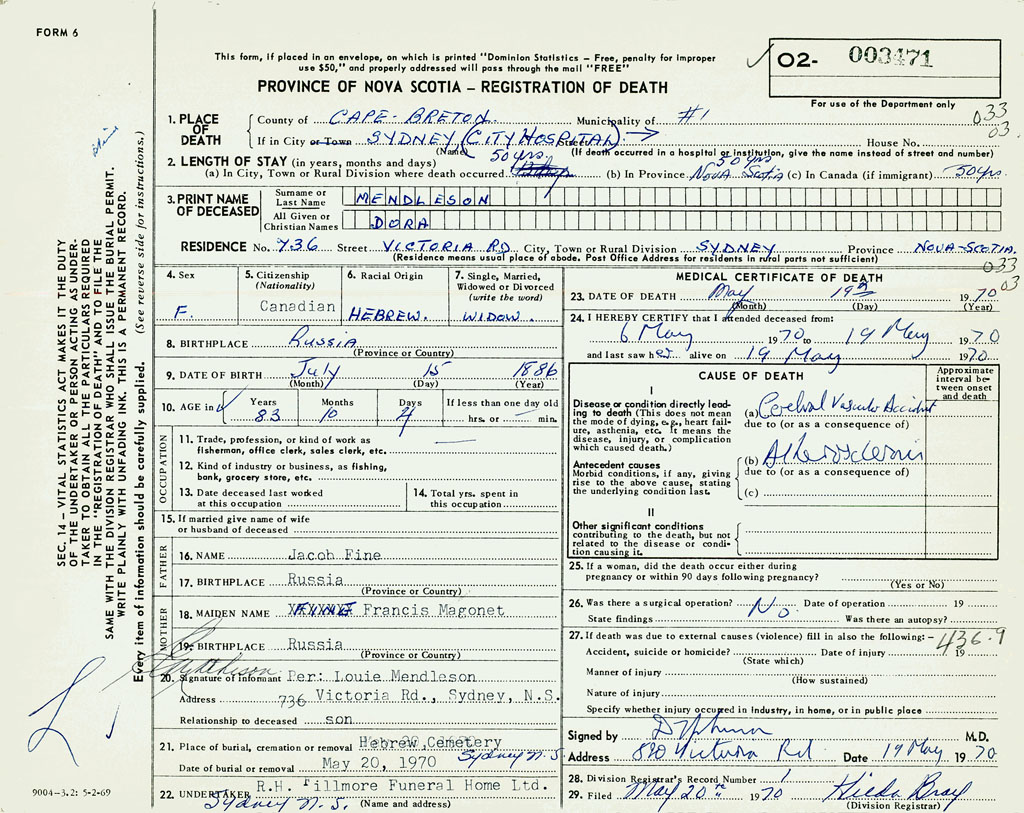 FORM 6
This form, if placed in an envelope, on which is printed "Dominion Statistics – Free, penalty for improper
use $50," and properly addressed will pass through the mail "FREE"
O2- 003471
For use of the Department only
PROVINCE OF NOVA SCOTIA – REGISTRATION OF DEATH
033
03
1. PLACE OF DEATH
County of CAPE-BRETON Municipality of #1
If in City or Town SYDNEY (CITY HOSPITAL) → Street House No.
(Name) (If death occurred in a hospital or institution, give the name instead of street and number)
2. LENGTH OF STAY (in years, months and days)
(a) In City, Town or Rural Division where death occurred 50 yrs. (b) In Province Nova Scotia 50 yrs (c) In Canada (if immigrant) 50 yrs.
3. PRINT NAME OF DECEASED
Surname or Last Name MENDLESON
All Given or Christian Names DORA
RESIDENCE No. 736 Street VICTORIA RD. City, Town or Rural Division SYDNEY Province NOVA-SCOTIA.
(Residence means usual place of abode. Post Office Address for residents in rural parts not sufficient)
033
03
4. Sex
F.
5. Citizenship
(Nationality)
Canadian
6. Racial Origin
HEBREW.
7. Single, Married,
Widowed or Divorced
(write the word)
WIDOW.
8. BIRTHPLACE Russia
(Province or Country)
9. DATE OF BIRTH July 15 1886
(Month) (Day) (Year)
10. AGE in Years Months Days If less than one day old
83 10 4 hrs. or — min.
OCCUPATION
11. Trade, profession, or kind of work as
fisherman, office clerk, sales clerk, etc. —
12. Kind of industry or business, as fishing,
bank, grocery store, etc.
13. Date deceased last worked
at this occupation
14. Total yrs. spent in
this occupation
15. If married give name of wife
or husband of deceased
FATHER
16. NAME Jacob Fine
17. BIRTHPLACE Russia
(Province or Country)
MOTHER
18. MAIDEN NAME Francis Magonet
19. BIRTHPLACE Russia
(Province or Country)
20. Signature of informant Per: Louie Mendleson
Address 736 Victoria Rd., Sydney, N.S.
Relationship to deceased son
21. Place of burial, cremation or removal Hebrew Cemetery
Sydney N.S.
Date of burial or removal May 20, 1970
22. UNDERTAKER R.H. Fillmore Funeral Home Ltd.
Sydney N.S. (Name and address)
MEDICAL CERTIFICATE OF DEATH
23. DATE OF DEATH May 19 1970
(Month) (Day) (Year)
24. I HEREBY CERTIFY that I attended deceased from:
6 May 1970 to 19 May 1970
and last saw her alive on 19 May 1970
CAUSE OF DEATH
Approximate
interval be-
tween onset
and death
I
Disease or condition directly lead-
ing to death (This does not mean
the mode of dying, e.g., heart fail-
ure, asthenia, etc. It means the
disease, injury, or complication
which caused death.)
(a) Cerebral Vascular Accident
due to (or as a consequence of)
Antecedent causes
Morbid conditions, if any, giving
rise to the above cause, stating
the underlying condition last.
(b) Atherosclerosis
due to (or as a consequence of)
(c)
II
Other significant conditions
contributing to the death, but not
related to the disease or condi-
tion causing it.
25. If a woman, did the death occur either during
pregnancy or within 90 days following pregnancy?
(Yes or No)
26. Was there a surgical operation? No. Date of operation 19
State findings Was there an autopsy?
27. If death was due to external causes (violence) fill in also the following: – 436.9
Accident, suicide or homicide? Date of injury 19
(State which)
Manner of injury
(How sustained)
Nature of injury
Specify whether injury occurred in industry, in home, or in public place
Signed by M.D.
Address 890 Victoria Rd Date 19 May 1970
28. Division Registrar's Record Number 1
29. Filed May 20 1970 Hilda Bray
(Division Registrar)
SEC. 14 – VITAL STATISTICS ACT MAKES IT THE DUTY
OF THE UNDERTAKER OR PERSON ACTING AS UNDER-
TAKER TO OBTAIN ALL THE PARTICULARS REQUIRED
IN THE "REGISTRATION OF DEATH" AND TO FILE THE
SAME WITH THE DIVISION REGISTRAR WHO SHALL ISSUE THE BURIAL PERMIT.
WRITE PLAINLY WITH UNFADING INK. THIS IS A PERMANENT RECORD.
Every item of information should be carefully supplied. (See reverse side for instructions.)
9004-3.2: 5-2-69